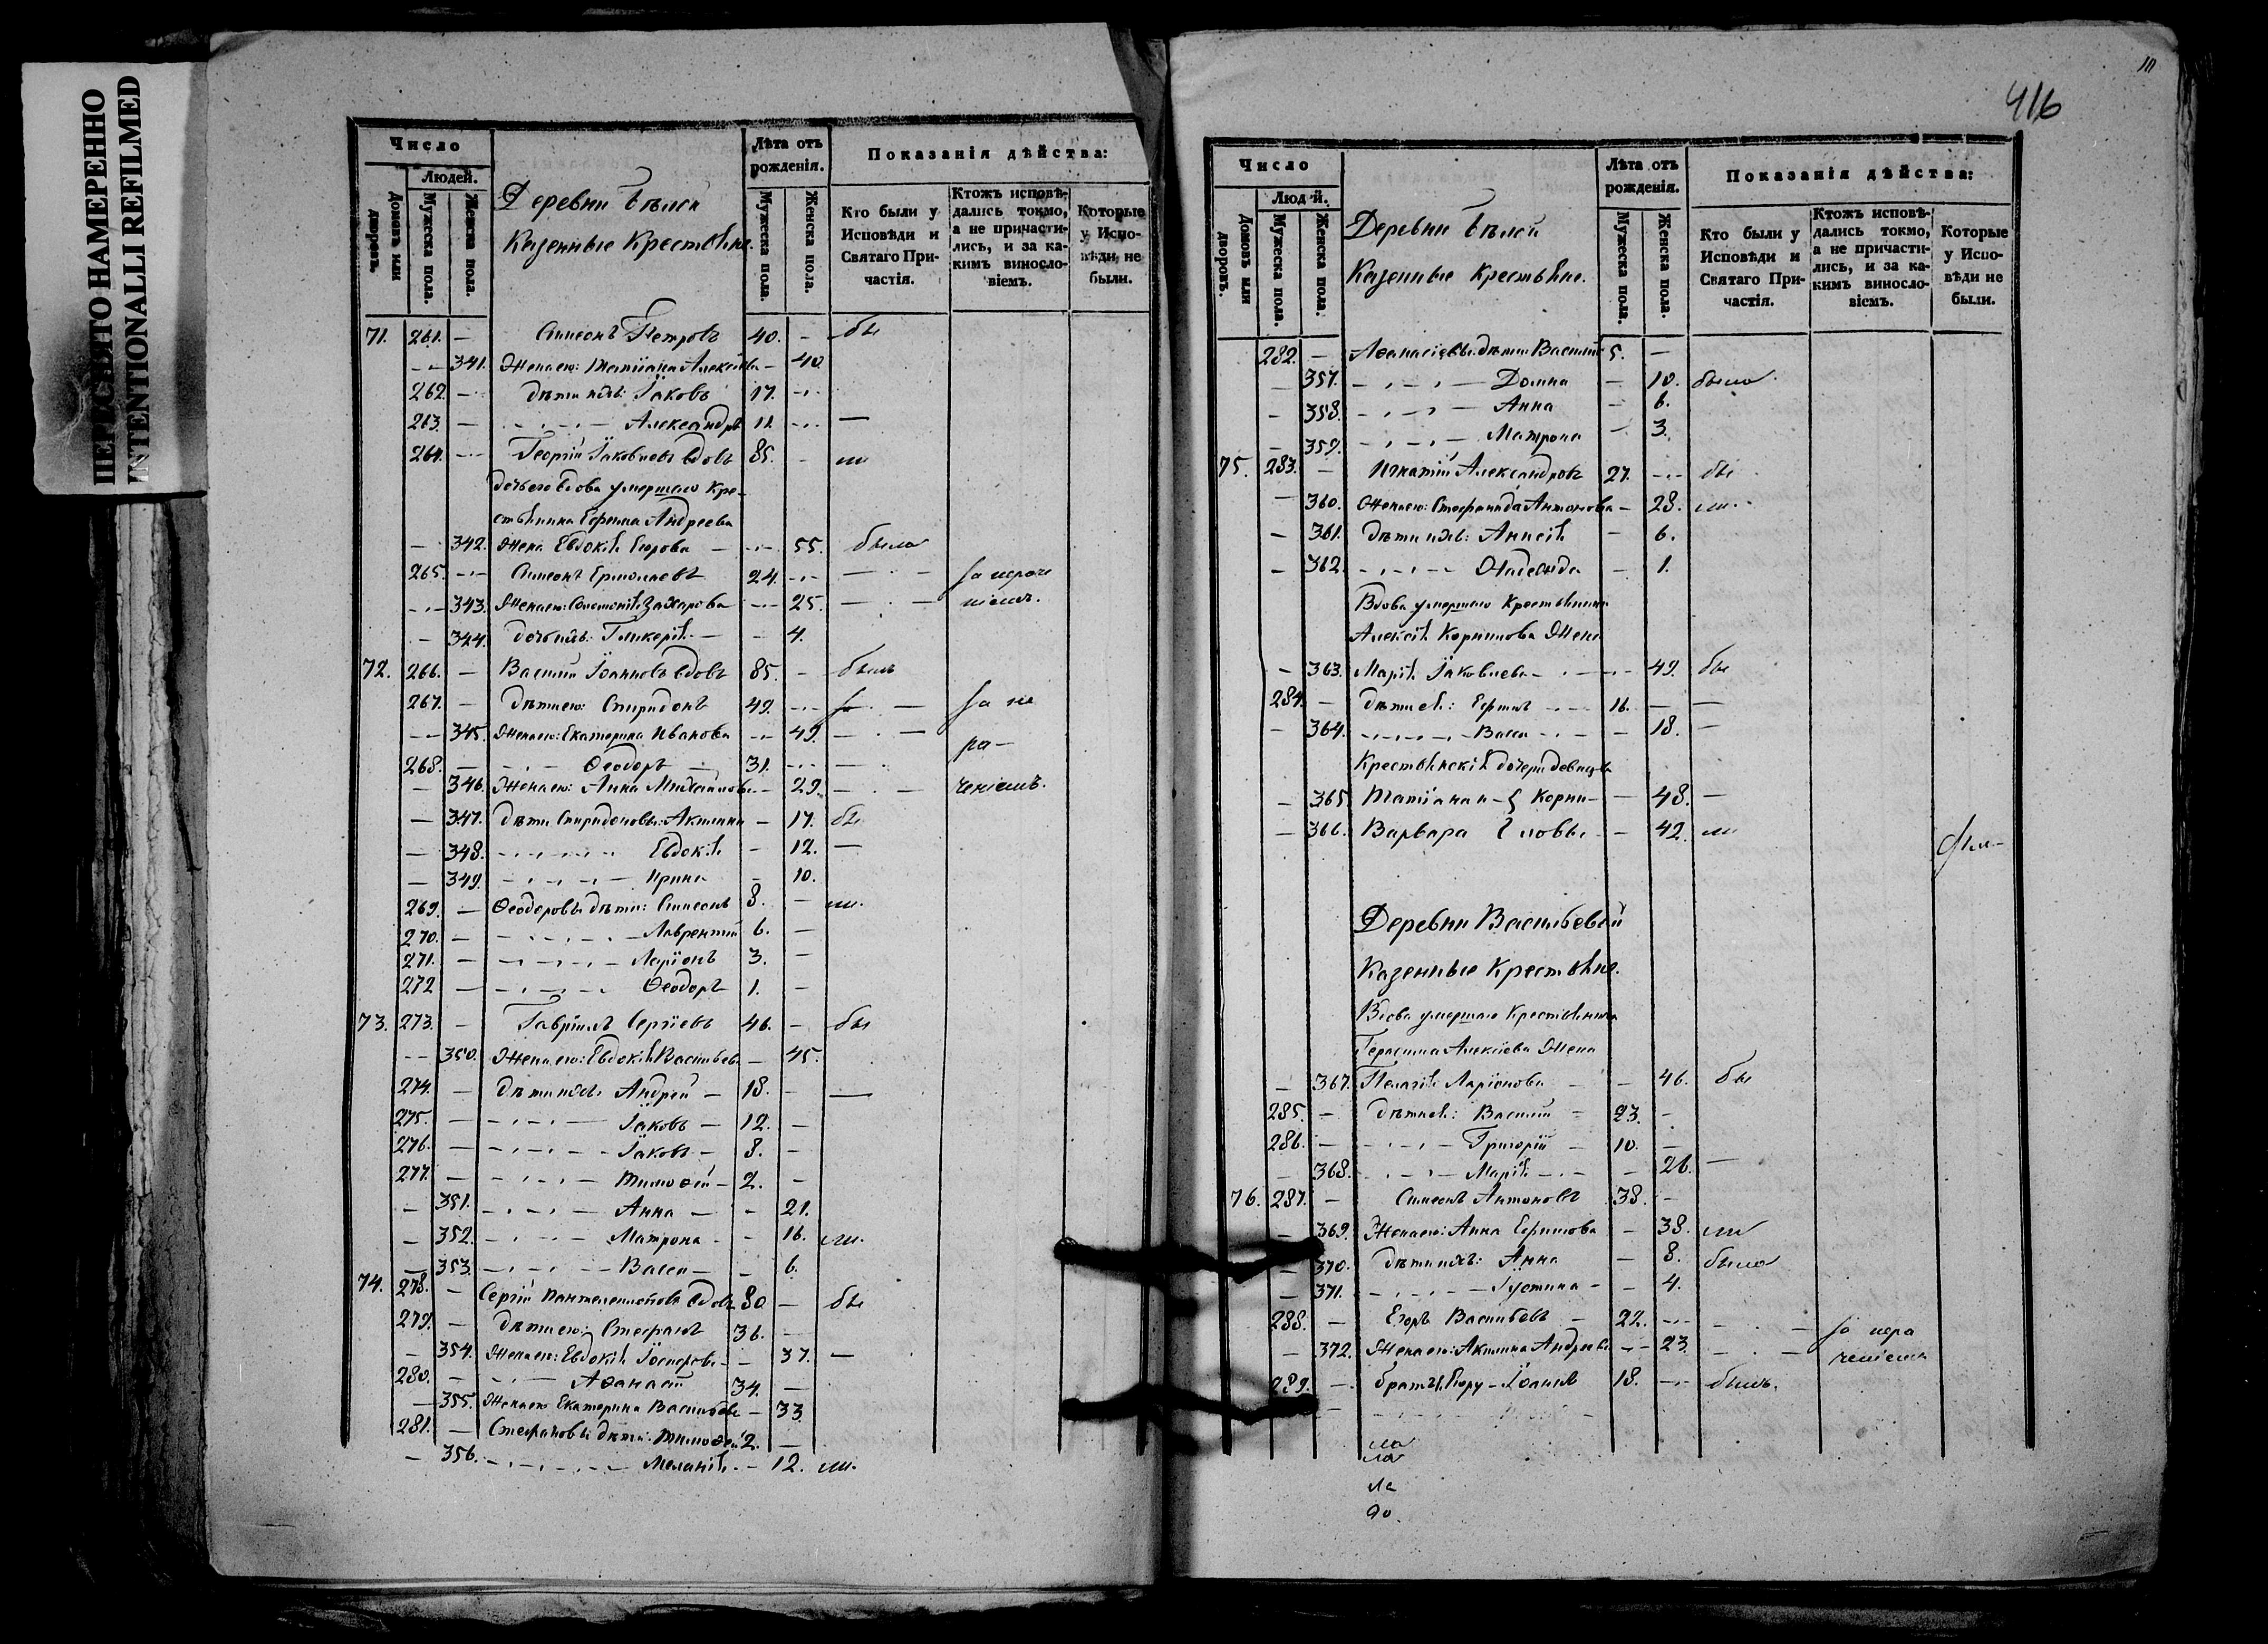 ПЕРЕСНЯТО НАМЕРЕННО
INTENTIONALLI REFILMED
Число
Людей.
Домовъ или дворовъ.
Мужеска пола.
Женска пола.
Деревни Бѣлей
Казенные Крестьяне.
Лѣта отъ рожденія.
Мужеска пола.
Женска пола.
Показанія дѣйства:
Кто были у Исповѣди и Святаго Причастія.
Ктожъ исповѣдались токмо, а не причастились, и за какимъ винословіемъ.
Которые у Исповѣди не были.
71. 261. — Симеонъ Петровъ 40. — бы
— 341. Жена его: Татіана Алексѣева — 40.
262. — дѣти ихъ: Іаковъ 17. —
263. — Александръ 11. — —
264. — Георгій Іаковлевъ вдовъ 85. — ли
дочь его вдова умершаго Кре-
стьянина Ефрема Андреева
— 342. Жена Евдокія Егорова — — 55. была
265. — Симеонъ Ермолаевъ 24. — — за нерач
— 343. Жена его: Захарова — 25. — ніемъ.
— 344. дочь ихъ: Гликерія — — 4.
72. 266. — Василій Іоанновъ вдовъ 85. — былъ
267. — дѣти его: Спиридонъ 49. — — за не
— 345. Жена его: Екатерина Иванова — 49. — ра-
268. — Ѳеодоръ 31. — —
— 346. Жена его: Анна Михайлова — 29. — ченіемъ.
— 347. Дѣти Спиридоновы: Акилина — 17. бы
— 348. Евдокія — 12. —
— 349. Ирина — 10.
269. — Ѳеодоровы дѣти: Симеонъ 8. — ли.
270. — Лаврентій 6. —
271. — Ларіонъ 3. —
272 — Ѳеодоръ 1. —
73. 273. — Гавріилъ Сергіевъ 46. — бы
— 350. Жена его: Евдокія Васильева — 45.
274. — дѣти ихъ: Андрей — 18. — —
275. — Іаковъ — 12. —
276. — Іаковъ — 8. —
277. — Тимоѳей — 2. —
— 351. Анна — — 21.
— 352. Матрона — 16. ли.
— 353. Васса — — 6.
74. 278. — Сергій Пантелеимоновъ вдовъ 80. — бы
279. — дѣти его: Стефанъ 36. —
— 354. Жена его: Евдокія Іосифова — 37. —
280. — Аѳанасій 34. —
— 355. Жена его Екатерина Васильева — 33.
281. — Стефановы дѣти: Тимоѳей 2. —
— 356. Меланія. — 12. ли.
10
416
Число
Людй.
Домовъ или дворовъ.
Мужеска пола.
Женска пола.
Деревни Бѣлей
Казенные Крестьяне.
Лѣта отъ рожденія.
Мужеска пола.
Женска пола.
Показанія дѣйства:
Кто были у Исповѣди и Святаго Причастія.
Ктожъ исповѣдались токмо, а не причастились, и за какимъ винословіемъ.
Которые у Исповѣди не были.
282. — Аѳанасіевы дѣти Василій 5. —
— 357. Домна — 10. была
— 358. Анна — 6.
— 359. Матрона — 3.
75. 283. — Игнатій Александровъ 27. — бы
— 360. Жена его: Стефанида Антонова — 28. ли.
— 361. дѣти ихъ: Анисія — 6.
— 362. Надежда — 1.
Вдова умершаго Крестьянина
Алексія Корнилова Жена
— 363. Марія Іаковлева — — 49. бы
284. — дѣти ея: Ефимъ — 16. — —
— 364. Васса — — 18. —
Крестьянскія дочери девицы
— 365. Татіана и Корни- — 48. —
— 366. Варвара ловы — 42. ли
Деревни Васильевой
Казенные Крестьяне.
Вдова умершаго Крестьянина
Герасима Алексіева Жена
— 367. Пелагія Ларіонова — — 46. бы
285. — дѣти ея: Василій — 23. —
286. — Григорій — 10. —
— 368. Марія — — 26. —
76. 287. — Симеонъ Антоновъ 38. —
— 369. Жена его: Анна Ефимова — 38. ли
— 370. дѣти ихъ: Анна — 8. была
— 371. Іустина — — 4.
288. — Егоръ Васильевъ — 22. — — за нера
— 372. Жена его: Акилина Андреева — 23. — ченіемъ
289. — братъ Егору — Іоаннъ 18. — былъ.
ла
ла
ла